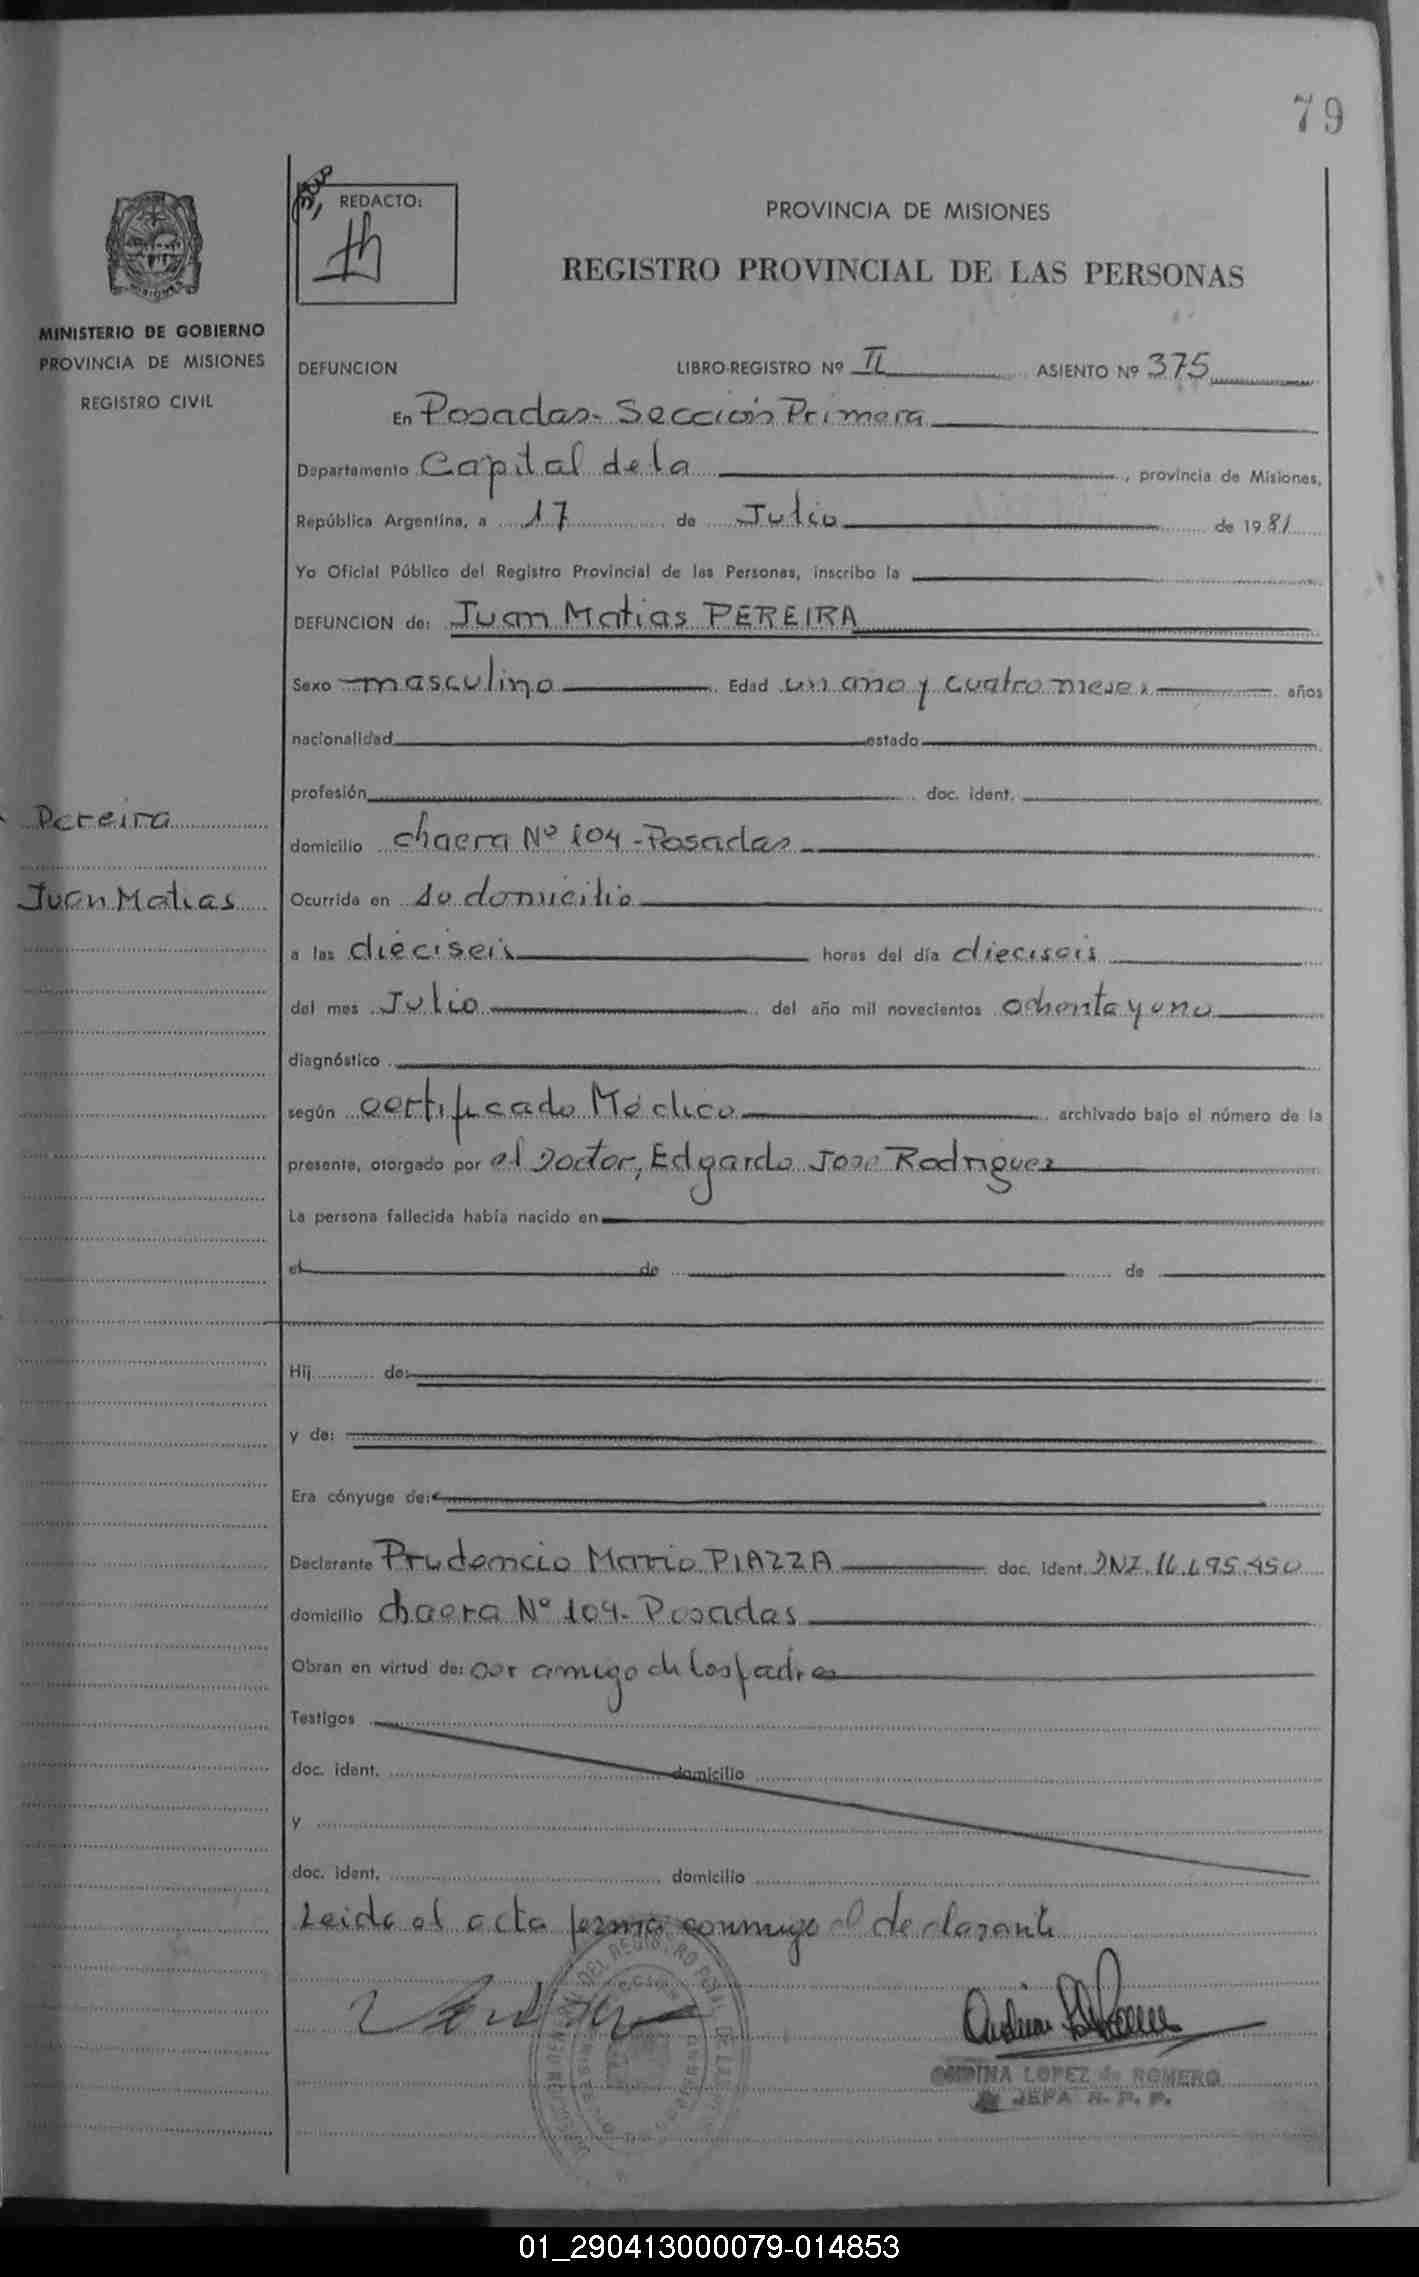 79
REDACTO:
PROVINCIA DE MISIONES
REGISTRO PROVINCIAL DE LAS PERSONAS
MINISTERIO DE GOBIERNO
PROVINCIA DE MISIONES
REGISTRO CIVIL
DEFUNCION LIBRO-REGISTRO Nº II ASIENTO Nº 375
En Posadas - Sección Primera
Departamento Capital de la, provincia de Misiones,
República Argentina, a 17 de Julio de 1981
Yo Oficial Público del Registro Provincial de las Personas, inscribo la
DEFUNCION de: Juan Matias PEREIRA
Sexo masculino Edad un año y cuatro meses años
nacionalidad estado
profesión doc. ident.
Pereira
domicilio chacra Nº 104 - Posadas
Juan Matias
Ocurrida en su domicilio
a las dieciseis horas del día dieciseis
del mes Julio del año mil novecientos ochenta y uno
diagnóstico
según certificado Médico archivado bajo el número de la
presente, otorgado por el Doctor, Edgardo Jose Rodriguez
La persona fallecida había nacido en
el de de
Hij de:
y de:
Era cónyuge de:
Declarante Prudencio Mario PIAZZA doc. ident. DNI. 16.695.450
domicilio chacra Nº 104 - Posadas
Obran en virtud de: ser amigo de los padres
Testigos
doc. ident. domicilio
y
doc. ident. domicilio
Leida el acta firma conmigo el declarante
ONDINA LOPEZ de ROMERO
JEFA R. P. P.
01_290413000079-014853